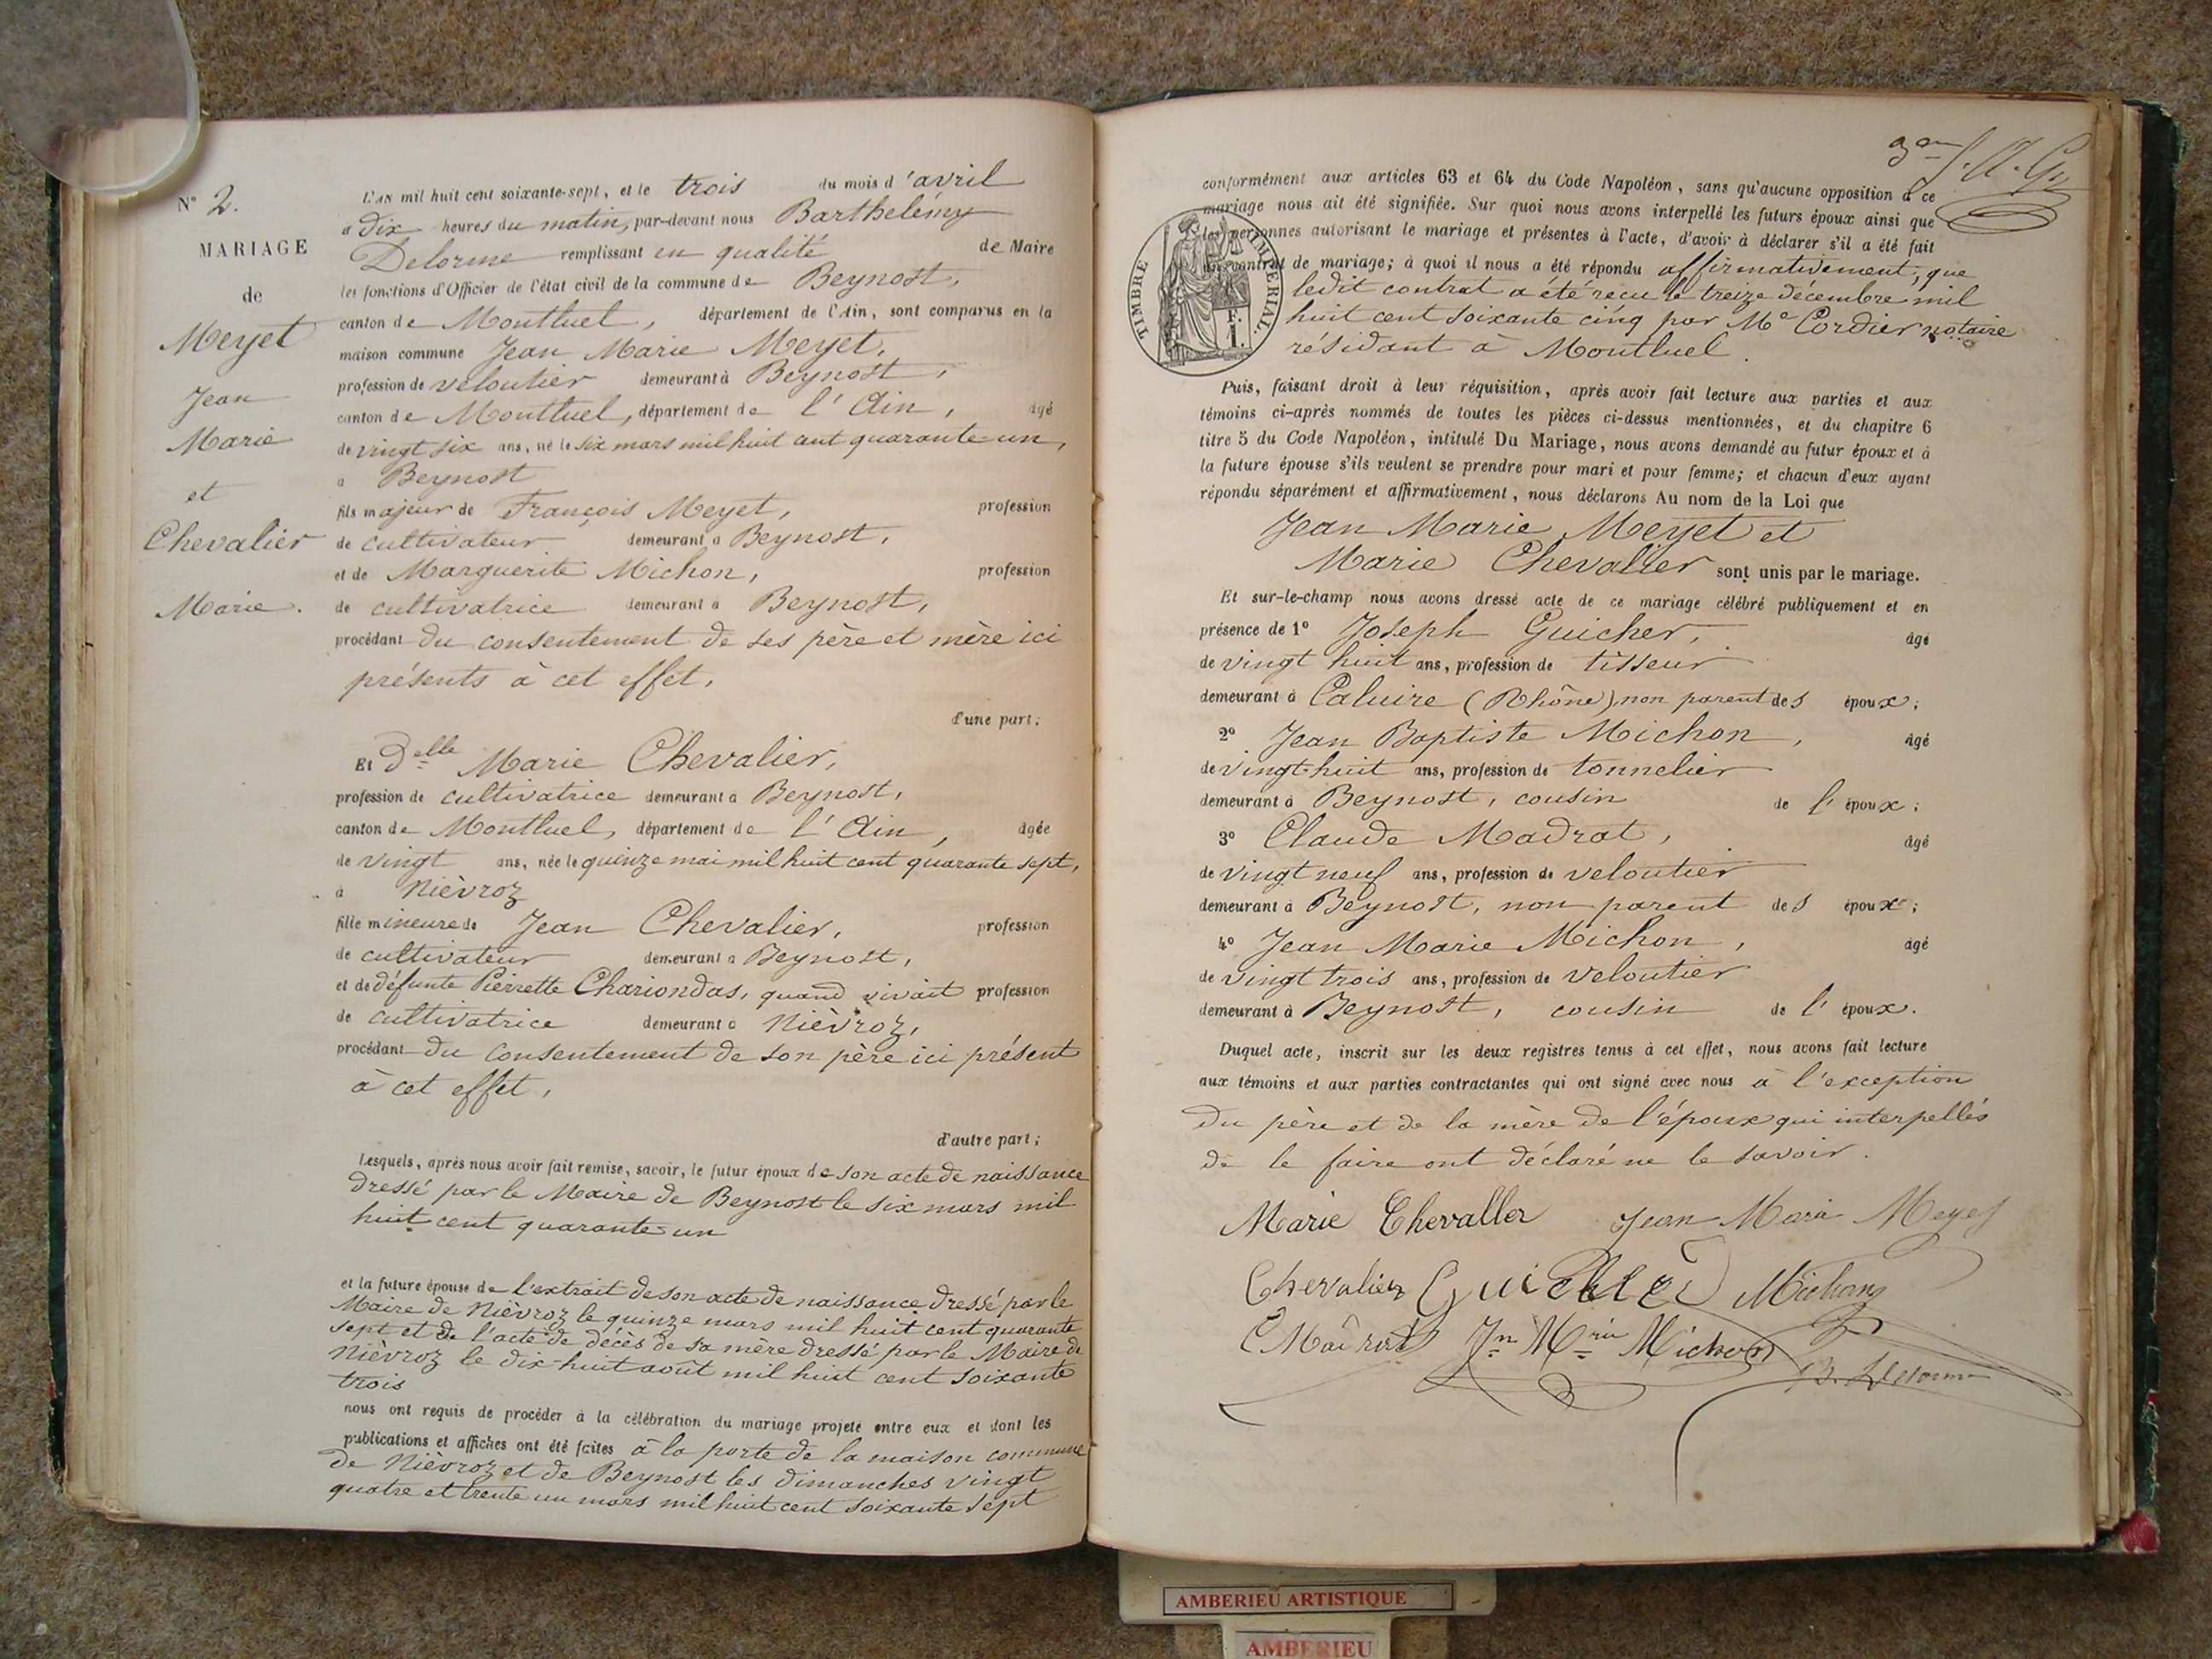 N° 2.
MARIAGE
de
Meyet
Jean
Marie
et
Chevalier
Marie.
L'AN mil huit cent soixante-sept, et le trois du mois d'avril
à dix heures du matin, par-devant nous Barthelémy
Delorme remplissant en qualité de Maire
les fonctions d'Officier de l'état civil de la commune de Beynost,
canton de Montluel, département de l'Ain, sont comparus en la
maison commune Jean Marie Meyet,
profession de veloutier demeurant à Beynost,
canton de Montluel, département de l'Ain, âgé
de vingt six ans, né le six mars mil huit cent quarante-un,
à Beynost
fils majeur de François Meyet, profession
de cultivateur demeurant à Beynost,
et de Marguerite Michon, profession
de cultivatrice demeurant à Beynost,
procédant du consentement de ses père et mère ici
présents à cet effet,
d'une part;
Et Delle Marie Chevalier,
profession de cultivatrice demeurant à Beynost,
canton de Montluel, département de l'Ain, âgée
de vingt ans, née le quinze mai mil huit cent quarante sept,
à Nièvroz
fille mineure de Jean Chevalier, profession
de cultivateur demeurant à Beynost,
et de défunte Pierrette Chariondas, quand vivait profession
de cultivatrice demeurant à Nièvroz,
procédant du consentement de son père ici présent
à cet effet,
d'autre part;
Lesquels, après nous avoir fait remise, savoir, le futur époux de son acte de naissance
dressé par le Maire de Beynost le six mars mil
huit cent quarante-un
et la future épouse de l'extrait de son acte de naissance dressé par le
Maire de Nièvroz le quinze mars mil huit cent quarante
sept et de l'acte de décès de sa mère dressé par le Maire de
Nièvroz le dix-huit août mil huit cent soixante
trois
nous ont requis de procéder à la célébration du mariage projeté entre eux et dont les
publications et affiches ont été faites à la porte de la maison commune
de Nièvroz et de Beynost les dimanches vingt
quatre et trente un mars mil huit cent soixante sept
conformément aux articles 63 et 64 du Code Napoléon, sans qu'aucune opposition à ce
mariage nous ait été signifiée. Sur quoi nous avons interpellé les futurs époux ainsi que
les personnes autorisant le mariage et présentes à l'acte, d'avoir à déclarer s'il a été fait
un contrat de mariage; à quoi il nous a été répondu affirmativement, que
ledit contrat a été reçu le treize décembre mil
huit cent soixante cinq par Me Cordier notaire
résidant à Montluel.
TIMBRE IMPÉRIAL.
F.
1.
Puis, faisant droit à leur réquisition, après avoir fait lecture aux parties et aux
témoins ci-après nommés de toutes les pièces ci-dessus mentionnées, et du chapitre 6
titre 5 du Code Napoléon, intitulé Du Mariage, nous avons demandé au futur époux et à
la future épouse s'ils veulent se prendre pour mari et pour femme; et chacun d'eux ayant
répondu séparément et affirmativement, nous déclarons Au nom de la Loi que
Jean Marie Meyet et
Marie Chevalier sont unis par le mariage.
Et sur-le-champ nous avons dressé acte de ce mariage célébré publiquement et en
présence de 1° Joseph Guicher, âgé
de vingt huit ans, profession de tisseur
demeurant à Caluire (Rhône), non parent des époux;
2° Jean Baptiste Michon, âgé
de vingt-huit ans, profession de tonnelier
demeurant à Beynost, cousin de l'époux;
3° Claude Madrat, âgé
de vingt neuf ans, profession de veloutier
demeurant à Beynost, non parent des époux;
4° Jean Marie Michon, âgé
de vingt trois ans, profession de veloutier
demeurant à Beynost, cousin de l'époux.
Duquel acte, inscrit sur les deux registres tenus à cet effet, nous avons fait lecture
aux témoins et aux parties contractantes qui ont signé avec nous à l'exception
du père et de la mère de l'époux qui interpellés
de le faire ont déclaré ne le savoir.
Marie Chevallier Jean Marie Meyet
Chevalier Guicher Michon
C Madrat Jn Mrie Michon
B. Delorme
AMBERIEU ARTISTIQUE
AMBERIEU